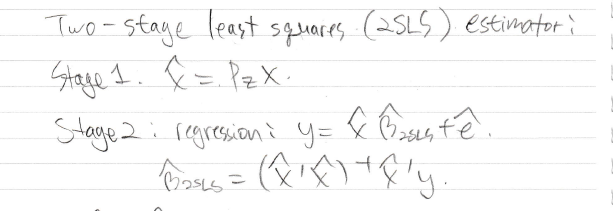 Two-stage least squares (2SLS) estimator:
Stage 1. X̂ = P_Z X.
Stage 2: regression: y = X̂ β̂_2SLS + ê.
β̂_2SLS = (X̂'X̂)⁺ X̂'y.